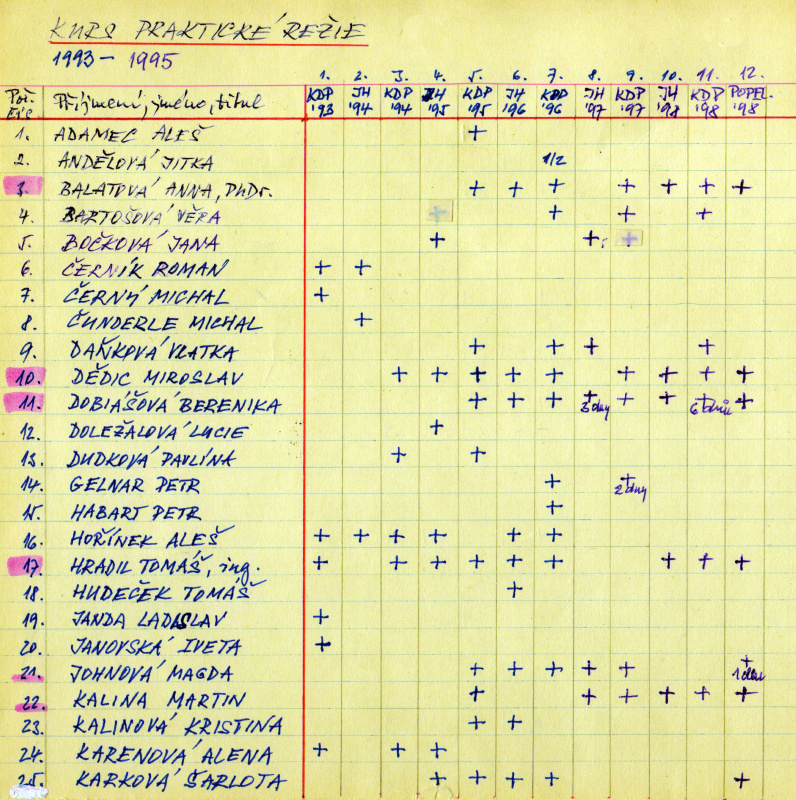 KURS PRAKTICKÉ REŽIE
1993 – 1995
1. 2. 3. 4. 5. 6. 7. 8. 9. 10. 11. 12.
Poř. Příjmení, jméno, titul KDP JH KDP JH KDP JH KDP JH KDP JH KDP POPEL.
'93 '94 '94 '95 '95 '96 '96 '97 '97 '98 '98 '98
1. ADAMEC ALEŠ +
2. ANDĚLOVÁ JITKA 1/2
3. BALATOVÁ ANNA, PhDr. + + + + + + +
4. BARTOŠOVÁ VĚRA + + + +
5. BOČKOVÁ JANA + + +
6. ČERNÍK ROMAN + +
7. ČERNÝ MICHAL +
8. ČUNDERLE MICHAL +
9. DAŇKOVÁ VLATKA + + + +
10. DĚDIC MIROSLAV + + + + + + + + +
11. DOBIÁŠOVÁ BERENIKA + + + + + + + +
3 dny 6 dnů
12. DOLEŽALOVÁ LUCIE +
13. DUDKOVÁ PAVLÍNA + +
14. GELNAR PETR + +
2 dny
15. HABART PETR +
16. HOŘÍNEK ALEŠ + + + + + +
17. HRADIL TOMÁŠ, ing. + + + + + + + + +
18. HUDEČEK TOMÁŠ +
19. JANDA LADISLAV +
20. JANOVSKÁ IVETA +
21. JOHNOVÁ MAGDA + + + + + +
1 den
22. KALINA MARTIN + + + + + +
23. KALINOVÁ KRISTINA + +
24. KARENOVÁ ALENA + + +
25. KARKOVÁ ŠARLOTA + + + + +